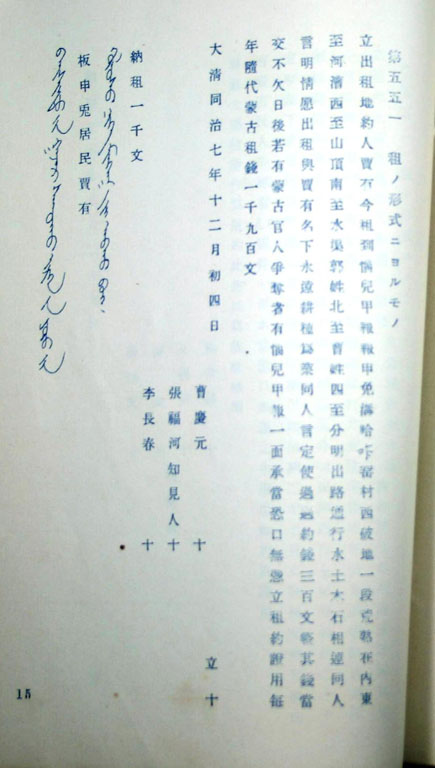 第五五一 租ノ形式ニヨルモノ
立出租地約人賈有今租到惱兒甲報報甲村西破地一段荒熟在內東
至河濱西至山頂南至水渠郭姓北至曹姓四至分明出路通行水土木石相連同人
言明情愿出租與賈有名下永遠耕種爲業同人言定使過過約錢三百文整其錢當
交不欠日後若有蒙古官人爭奪者有惱兒甲報一面承當恐口無憑立租約證用每
年隨代蒙古租錢一千九百文
大清同治七年十二月初四日 立十
曹慶元 十
張福河知見人十
李長春 十
納租一千文
板申兎居民賈有
15